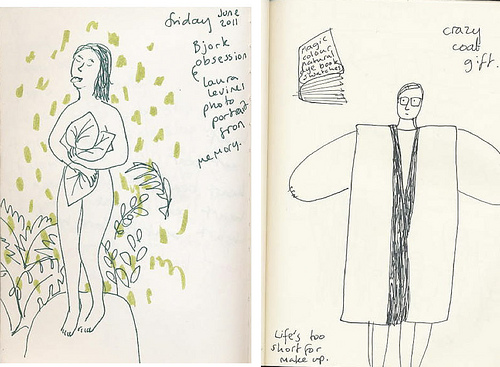 friday June
2011
Bjork
obsession
&
laura
levines
photo
portrait
from
memory.
magic
colour
natural
dye book
swatches
crazy
coat
gift.
Life's too
short for
make up.